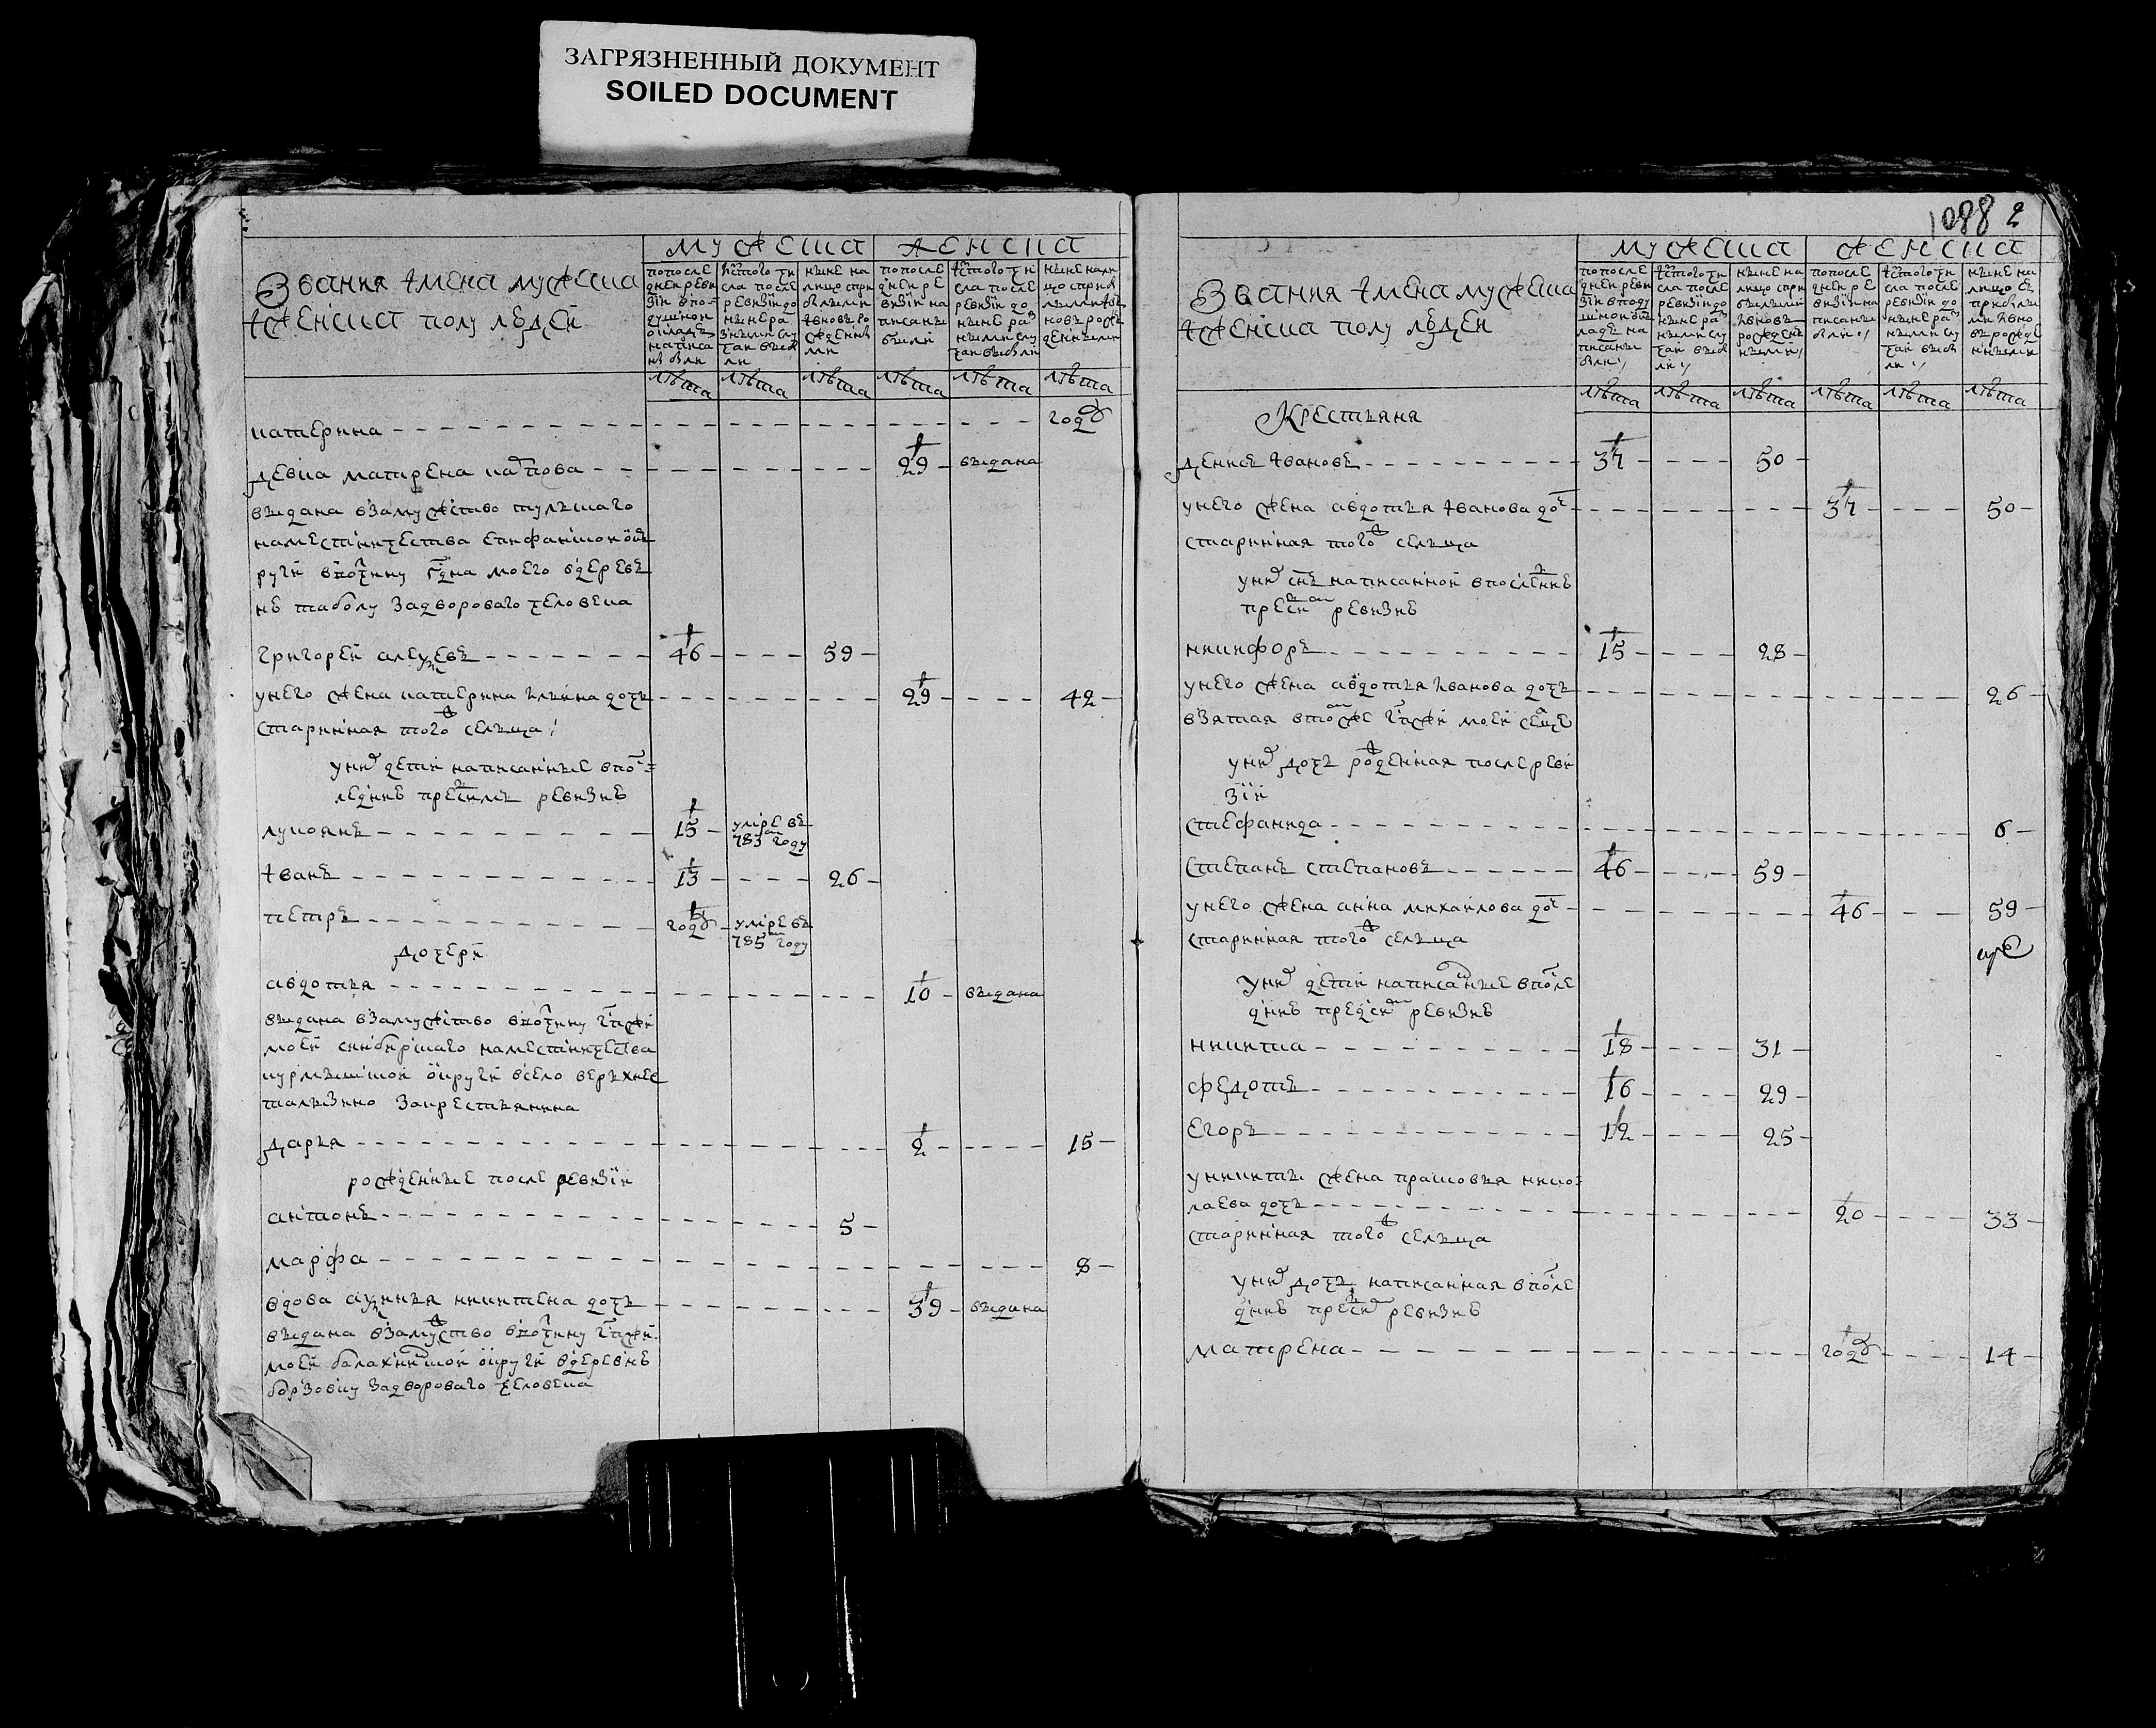 ЗАГРЯЗНЕННЫЙ ДОКУМЕНТ
SOILED DOCUMENT
мужеска женска
Звания імена мужеска
іженска полу людей
попосле дней ревизіи вподушной окладъ написаны были
ис того числа после ревизіи до ныне разными случаи выбыли
ныне на лицо с прибылыми ивновь рожденными
попосле дней ревизіи написаны были
ис того числа после ревизіи до ныне разными случаи выбыли
ныне налицо с прибылыми ивновь рожденными
лѣта лѣта лѣта лѣта лѣта лѣта
катерина годъ
девка матрена карпова 29 выдана
выдана взамужство тульскаго
наместничества епифанской ок
руги ввотчину гдна моего вдерев
нѣ таболу задвороваго человека
григорей алексеевъ 46 59
унего жена катерина ильина дочь 29 42
старинная того ж сельца
уних дети написанные впос
леднѣ пред сим ревизиѣ
лукоянъ 15 умре въ
783м году
іванъ 13 26
петръ годъ умре въ
785м году
дочери
авдотья 10 выдана
выдана взамужство ввотчину гспжи
моей синбирскаго наместничества
курмышской округи всело верхнее
талызино закрестьянина
дарья 2 15
рожденные после ревизіи
антонъ 5
марфа 8
вдова аксинья никитена дочь 39 выдана
выдана взамужство ввотчину гспжи
моей балахнинской округи вдеревнѣ
борзовку задвороваго человека
1088 2
мужеска женска
Звания імена мужеска
іженска полу людей
попосле дней ревизіи вподушной окладе написаны были
ис того числа после ревизіи до ныне разными случаи выбыли
ныне на лицо с прибылыми ивновь рожденными
попосле дней ревизіи написаны были
ис того числа после ревизіи до ныне разными случаи выбыли
ныне на лицо съ прибылыми ивновь рожденными
лѣта лѣта лѣта лѣта лѣта лѣта
Крестьяня
денисъ івановъ 37 50
унего жена авдотья іванова доч 37 50
старинная того ж сельца
уних снъ написанной впоследнѣ
пред сим ревизиѣ
никифоръ 15 28
унего жена авдотья иванова дочь 26
взятая втом же гспжи моей сельце
уних дочь рожденная после реви
зіи
стефанида 6
степанъ степановъ 46 59
унего жена анна михайлова доч 46 59
старинная того ж сельца
уних дети написанные впосле
днѣ пред сим ревизиѣ
никита 18 31
федотъ 16 29
егоръ 12 25
уникиты жена прасковья нико
лаева дочь 20 33
старинная того ж сельца
уних дочь написанная впосле
днѣ пред сим ревизиѣ
матрена годъ 14